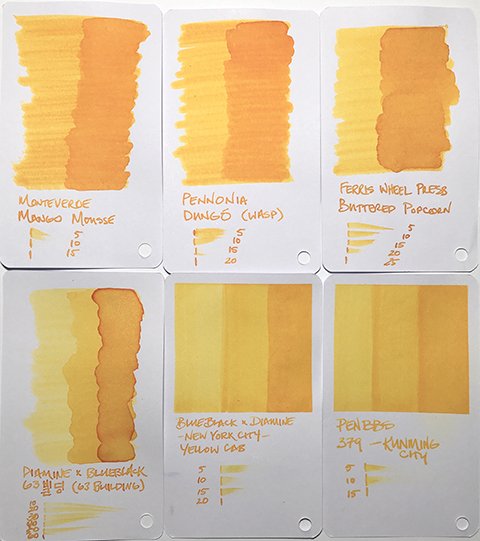 MONTEVERDE
MANGO MOUSSE
5
10
15
PENNONIA
DONGÓ (WASP)
5
10
15
20
FERRIS WHEEL PRESS
BUTTERED POPCORN
5
10
15
DIAMINE x BLUEBLACK
63 빌딩 (63 BUILDING)
BLUEBLACK x DIAMINE
-NEW YORK CITY-
YELLOW CAB
5
10
15
20
PENBBS
379 - KUNMING
CITY
5
10
15